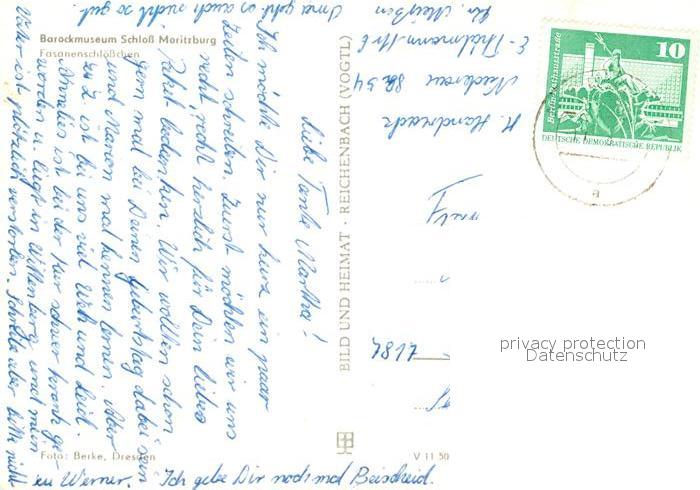 Barockmuseum Schloß Moritzburg
Fasanenschlößchen
Liebe Tante Martha!
Ich möchte Dir nur kurz ein paar
Zeilen schreiben. Zuerst möchten wir uns
recht, recht herzlich für Dein liebes
Paket bedanken. Wir wollten schon
gern mal bei Deinem Geburtstag dabei sein
und Deinen mal kennen lernen. Aber
zur Z. ist bei uns viel Weh und Leid.
Annelies ist bei der Kur schwer krank ge-
worden u. liegt in Wittenberg und mein
Vater ist plötzlich verstorben. Schreibe aber bitte nicht
zu Werner. Ich gebe Dir nochmal Bescheid.
Oma geht es auch nicht so gut.
H. Handreck
Niederau 8254
E-Thälmann-Str 6
Kr. Meißen
7184
BILD UND HEIMAT · REICHENBACH (VOGTL)
Foto: Berke, Dresden
V 11 50
10
Berlin, Rathausstraße
DEUTSCHE DEMOKRATISCHE REPUBLIK
a
privacy protection
Datenschutz